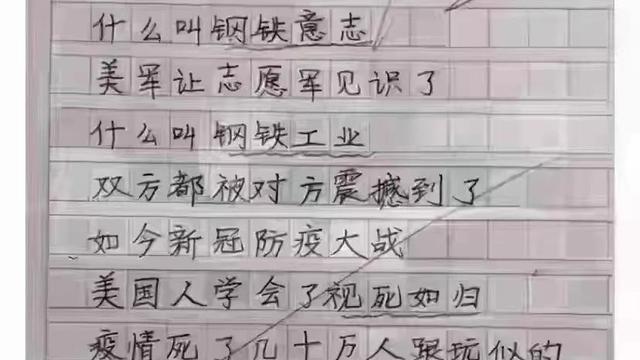 什么叫钢铁意志
美军让志愿军见识了
什么叫钢铁工业
双方都被对方震撼到了
如今新冠防疫大战
美国人学会了视死如归
疫情死了几十万人跟玩似的